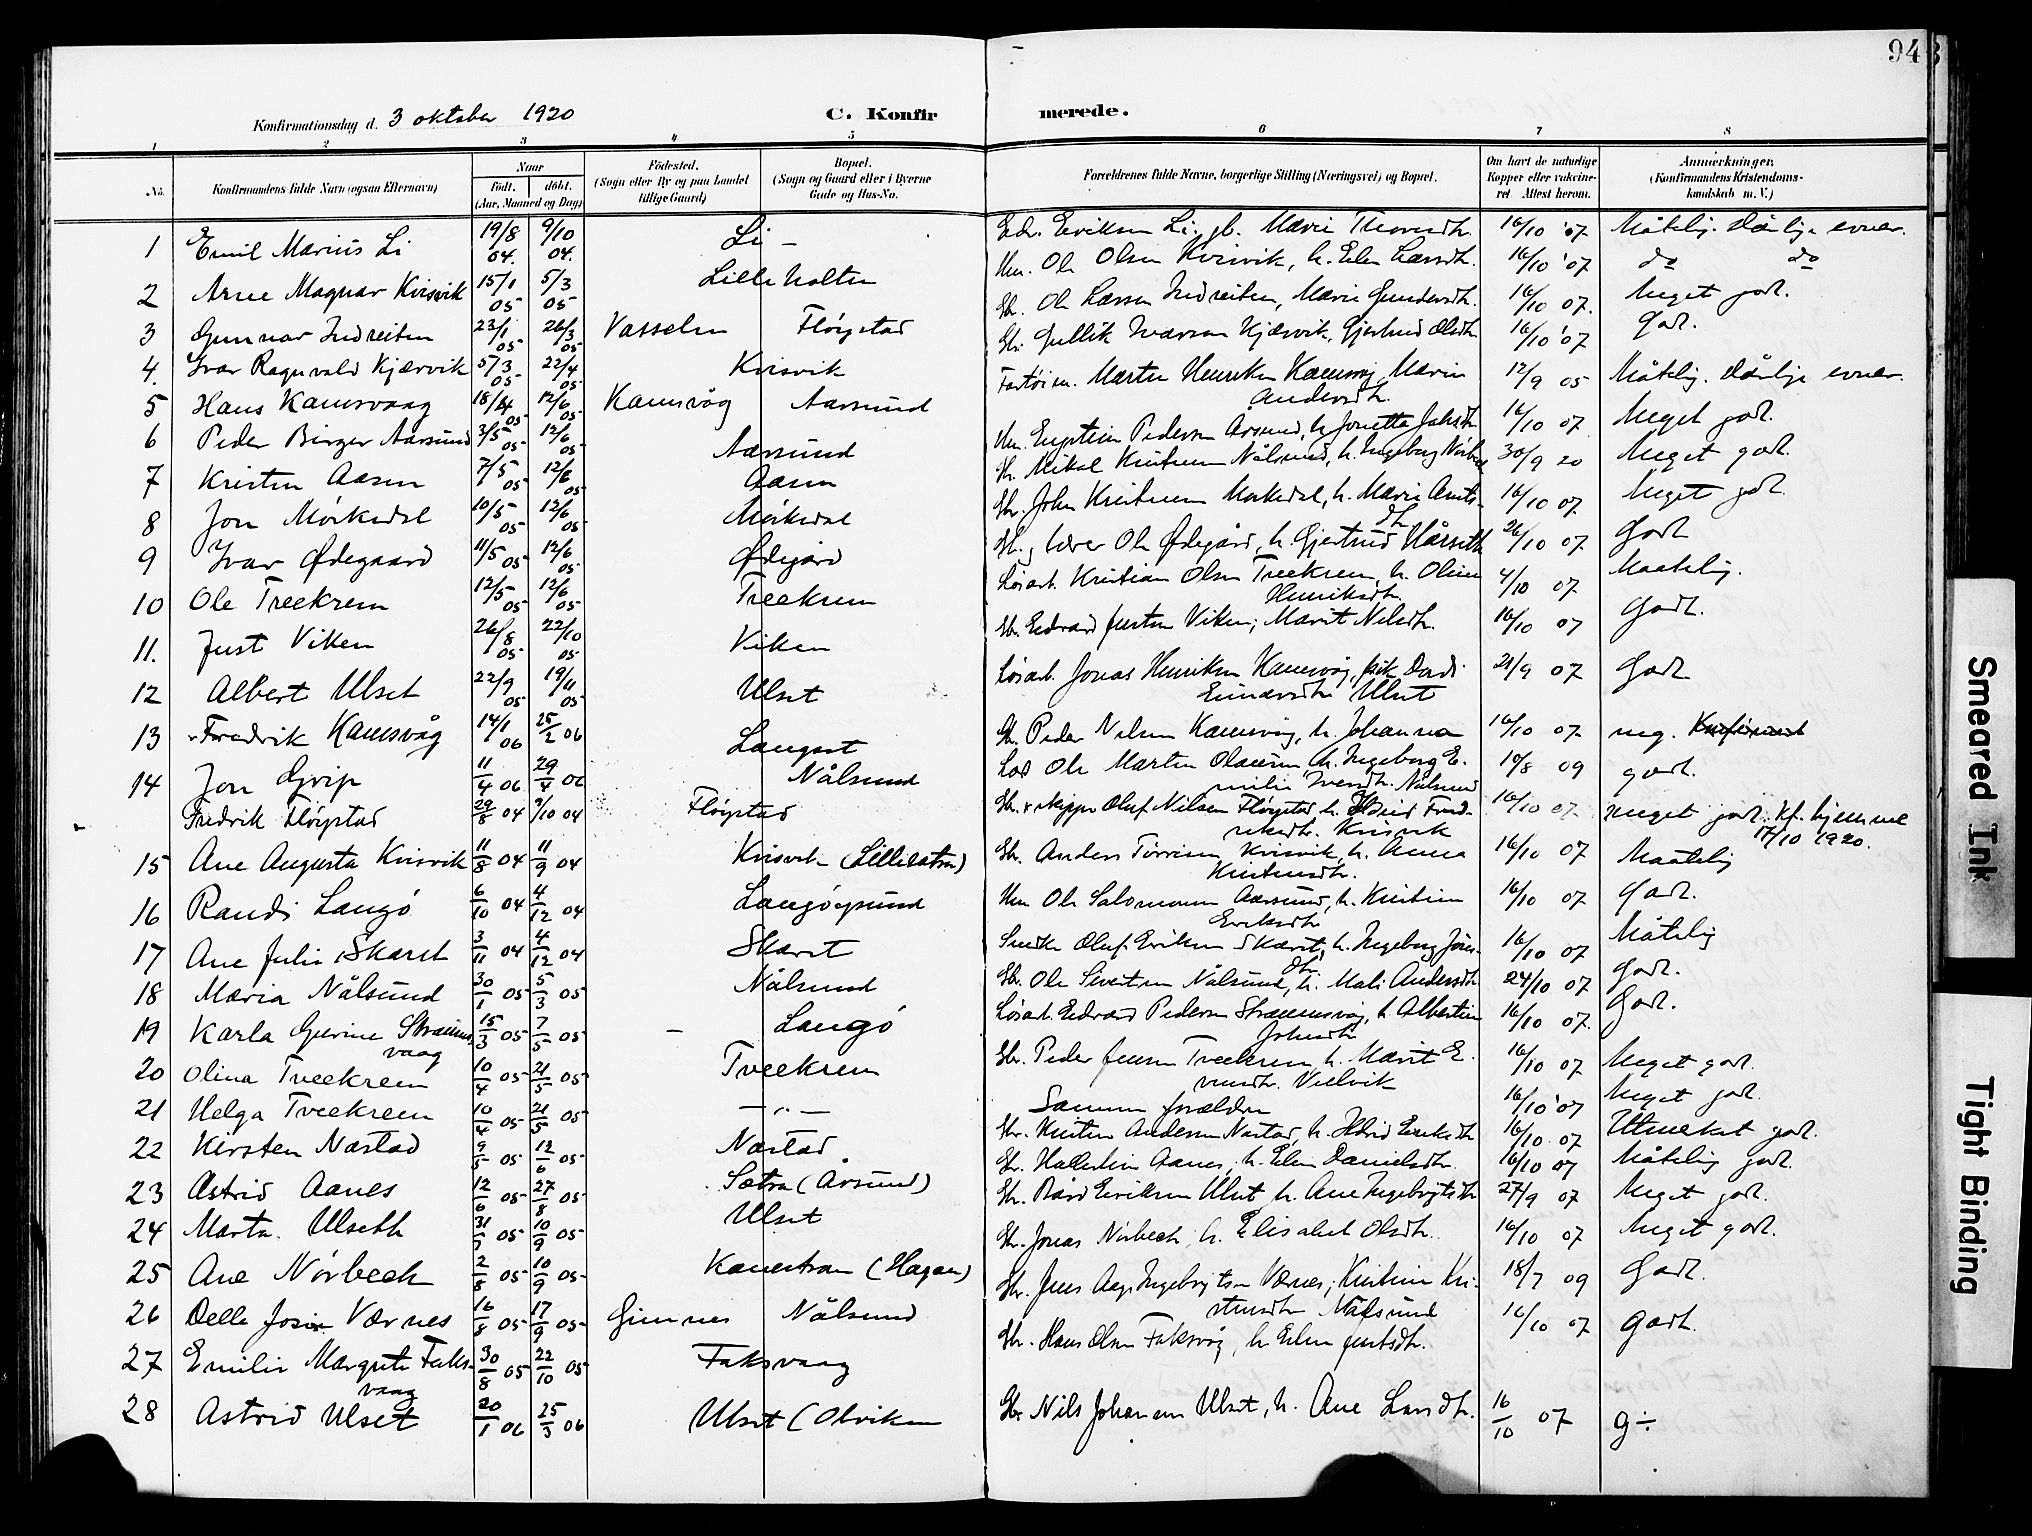 94
Konfirmationsdag d. 3 oktober 1920 C. Konfirmerede.
1 2 3 4 5 6 7 8
No. Konfirmandens fulde Navn (ogsaa Efternavn) Naar født. døbt. (Aar, Maaned og Dag) Fødested. (Sogn eller By og paa Landet tillige Gaard) Bopæl. (Sogn og Gaard eller i Byerne Gade og Hus-No. Forældrenes fulde Navne, borgerlige Stilling (Næringsvei) og Bopæl. Om havt de naturlige Kopper eller vakcineret Attest herom. Anmerkninger. (Konfirmandens Kristendomskundskab m. V.)
1 Emil Marius Li 19/8 04. 9/10 04. Li - Edv. Eriksen Li, 16/10 '07 Måtelig. Dårlige evner.
2 Arne Magnar Kvisvik 15/1 05 5/3 05 Lilleholten Hm. Ole Olsen Kvisvik, h. Elen Larsdtr. 16/10 '07 do do
3 Gunnar Indreiten 23/1 05 26/3 05 Vasselen Fløystad Gbr. Ole Larsen Indreiten, Marie Gundersdtr. 16/10 07. Meget godt.
4. Ivar Ragnvald Kjærvik 5/3 05 22/4 05 Kvisvik Gbr. Gullik Ivarsen Kjærvik, Gjertrud Olsdtr. 16/10 '07 Godt.
5 Hans Kamsvaag 18/4 05 12/6 05 Kamsvåg Aarsund Martin Henriksen Kamsvåg, Marie Andersdtr. 12/9 05 Måtelig. Dårlige evner.
6 Peder Birger Aarsund 3/5 05 12/6 05 Aarsund Hm. Engstein Pedersen Arsund, h. Jonetta 16/10 07 Meget godt.
7 Kristen Aasen 7/5 05 12/6 05 Aasen Gbr. Mikal Kristensen Nålsund, h. Ingeborg 30/9 20 Meget godt.
8 Jon Mørkedal 10/5 05 12/6 05 Mørkedal Gbr. John Kristensen Mørkedal, h. Marie 16/10 07. Meget godt.
9 Ivar Ødegaard 11/5 05 12/6 05 Ødegård Gbr. Ole Ødegård, h. Gjertrud Hårseth 26/10 07 Godt
10 Ole Treekrem 12/5 05 12/6 05 Treekrem Løsarb. Kristian Olsen Treekrem, h. Oline Henriksdtr. 4/10 07 Maatelig.
11. Just Viken 26/8 05 22/10 05 Viken Gbr. Edvard Justsen Viken; Marit Nilsdtr. 16/10 07 Godt.
12 Albert Ulset 22/9 05 19/11 05 Ulset Løsarb. Jonas Henriksen Kamsvåg, Einarsdtr Ulset 21/9 07 Godt
13 Fredrik Kamsvåg 14/1 06 25/2 06 Langset Gbr. Peder Nilsen Kamsvåg, h. Johanna 16/10 07 mg.
14 Jon Gjvip 11/4 06 29/4 06 Nålsund Los Ole Martin Olaussen h. Ingeborg Emilie Iversdtr. Nålsund 10/8 09 godt.
Fredrik Fløystad 29/8 04 9/10 04 Fløystad Gbr. skipper Oluf Nilsen Fløystad h. Fredriksdtr. Kvisvik 16/10 07 meget godt. Kf. hjemme 17/10 1920.
15 Ane Augusta Kvisvik 11/8 04 11/9 04 Kvisvik Gbr. Anders Tørrisen Kvisvik, h. Anna Kristensdtr. 16/10 07 Maatelig
16 Randi Langø 6/10 04 4/12 04 Langøysund Hm Ole Salomonsen Aarsund, h. Kristine Eriksdtr 16/10 07 Godt.
17 Ane Julie Skaret 3/11 04 4/12 04 Skaret Oluf Eriksen Skaret, h. Ingeborg Jonsdtr 16/10 07 Måtelig
18 Maria Nålsund 30/1 05 5/3 05 Nålsund Gbr. Ole Sivertsen Nålsund, h. Mali Andersdtr 24/10 07 Godt.
19 Karla Gurine Strømsvaag 15/3 05 7/5 05 - Langø Løsarb. Edvard Pedersen Strømsvåg, h. Albertine Johnsdtr 16/10 07. Godt.
20 Olina Tveekrem 10/4 05 21/5 05 Tveekrem Gbr. Peder Jensen Tveekrem h. Marit 16/10 07 Meget godt.
21 Helga Tveekrem 10/4 05 21/5 05 — „ — Samme forældre 16/10 '07 Meget godt.
22 Kirsten Nastad 9/5 05 12/6 05 Nastad Gbr. Kristen Andersen Nastad, h. Eriksdtr 16/10 07 Utmerket godt.
23 Astrid Aanes 12/6 05 27/8 05 Sætra (Årsund) Gbr. Aanes, h. Elen Danielsdtr. 16/10 07 Måtelig godt.
24 Marta Ulseth 31/7 05 10/9 05 Ulset Gbr. Bård Eriksen Ulset h. Ane Ingebrigtsdtr 27/9 07 Meget godt.
25 Ane Nørbech 2/8 05 10/9 05 Kanestrøm (Hagen) Gbr. Jonas Nørbech, h. Elisabet Olsdtr. 16/10 07 Meget godt.
26 Delle Josine Værnes 16/8 05 17/9 05 Gimnes Nålsund Gbr. Jens Aage Ingebrigtsen Værnes; Kristine Kristensdtr Nålsund 18/7 09 Godt.
27 Emilie Margrete Faksvaag 30/8 05 22/10 05 Faksvaag Gbr. Hans Olsen Faksvåg, h. Elen Justsdtr. 16/10 07 godt.
28 Astrid Ulset 20/1 06 25/3 06 Ulset (Olviken Gbr. Nils Johansen Ulset, h. Ane Larsdtr. 16/10 07 g÷
Smeared Ink
Tight Binding